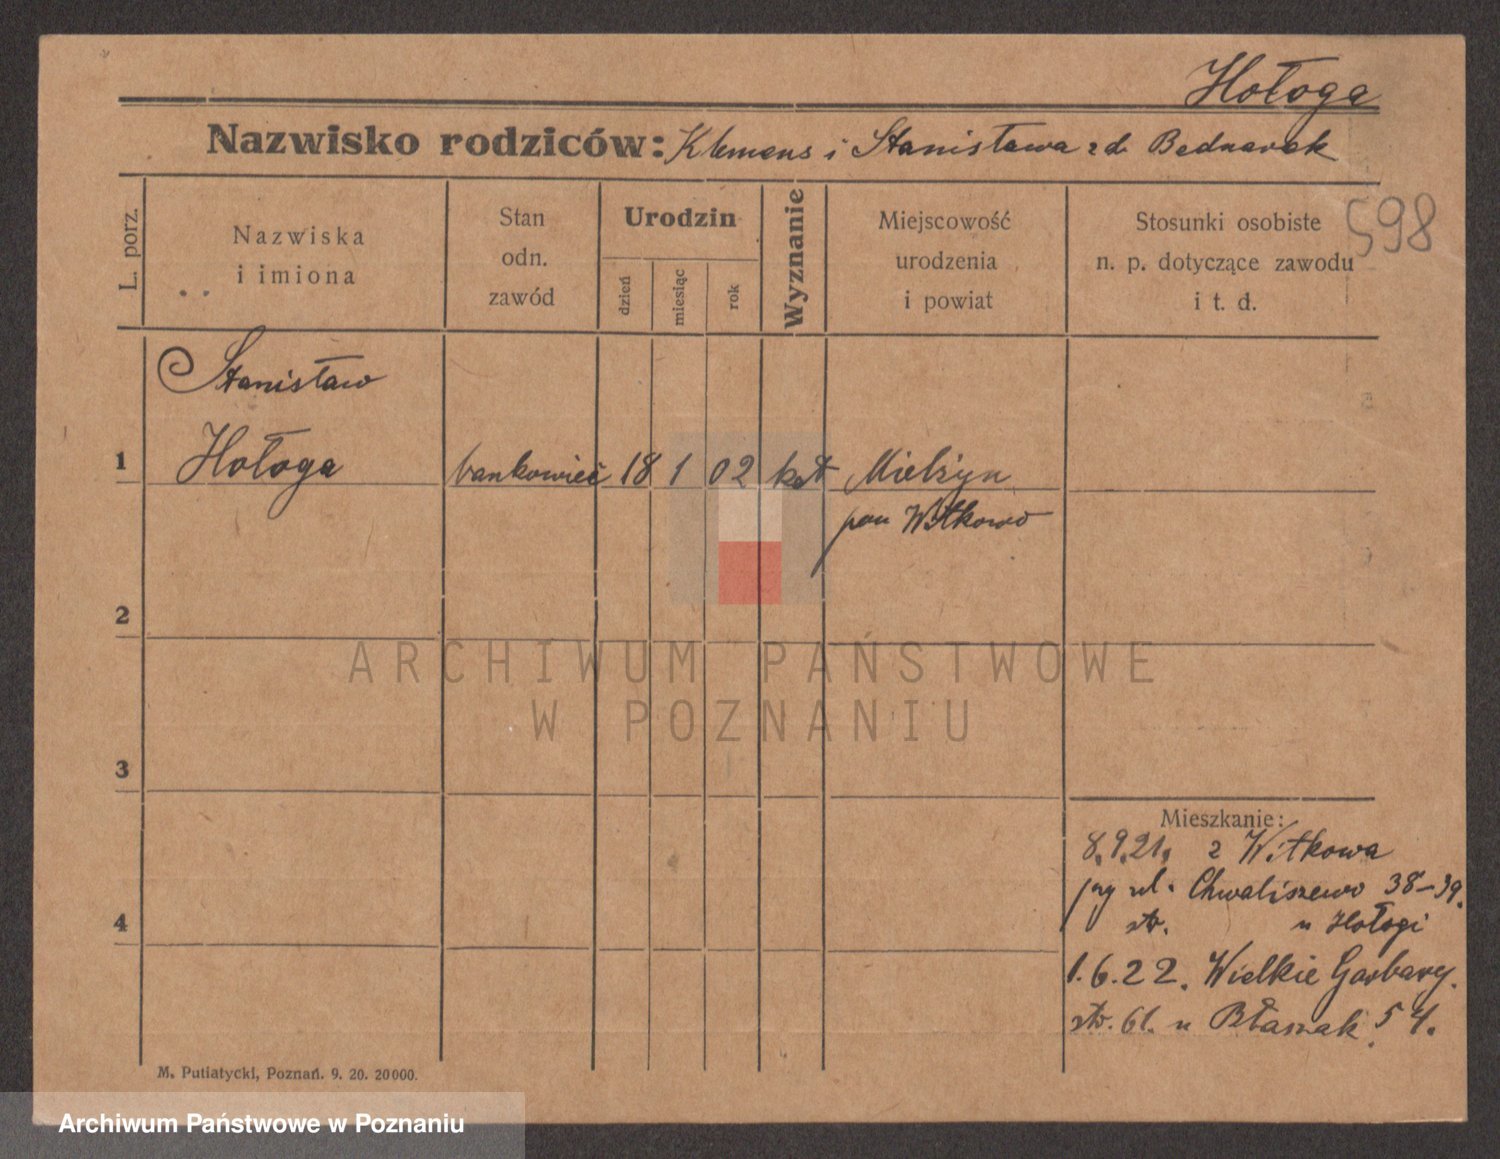 Hołoga
Nazwisko rodziców: Klemens i Stanisława zd Bednarek
598
L. porz.
Nazwiska
i imiona
Stan
odn.
zawód
Urodzin
dzień
miesiąc
rok
Wyznanie
Miejscowość
urodzenia
i powiat
Stosunki osobiste
n. p. dotyczące zawodu
i t. d.
Stanisław
1 Hołoga bankowiec 18 1 02 kat Mielżyn
pow Witkowo
2
ARCHIWUM PAŃSTWOWE
W POZNANIU
3
Mieszkanie:
8.9.21. z Witkowa
przy ul. Chwaliszewo 38-39.
4
str. u Hołogi
1.6.22. Wielkie Garbary.
str. 61. u Błaszak. 54.
M. Putiatycki, Poznań. 9. 20. 20000.
Archiwum Państwowe w Poznaniu